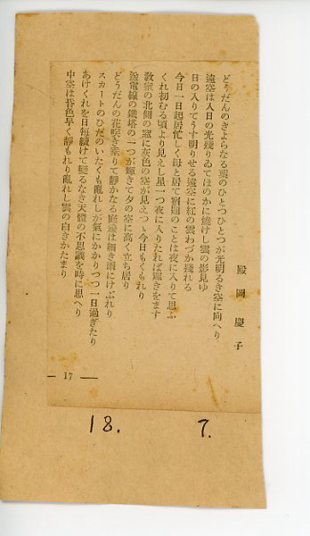 殿岡慶子
どうだんのきよらなる葉のひとつひとつが光明るき空に向へり
遠空は入日の光殘りゐてほのかに燒けし雲の影見ゆ
日の入りてうす明りせる遠空に紅の雲わづか殘れる
今日一日起居忙しく母と居て宿題のことは夜に入りて思ふ
くれ初むる頃より見えし星一つ夜に入りたれば輝きをます
敎室の北側の窓に灰色の空が見えつゝ今日もくもれり
送電線の鐵塔の一つが輝きて夕の空に高く立ち居り
どうだんの花咲き垂りて靜かなる庭邊は細き雨にけぶれり
スカートのひだのいたくも亂れしが氣にかかりつつ一日過ぎたり
あけくれを日每續けて變るなき天體の不思議を時に思へり
中空は昏色早く靜もれり亂れし雲の白きかたまり
— 17 —
18. 7.